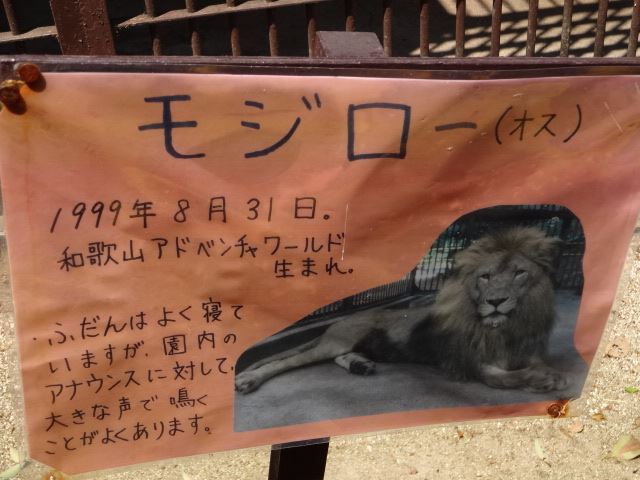 モジロー(オス)
1999年8月31日。
和歌山アドベンチャワールド
生まれ。
ふだんはよく寝て
いますが、園内の
アナウンスに対して、
大きな声で鳴く
ことがよくあります。